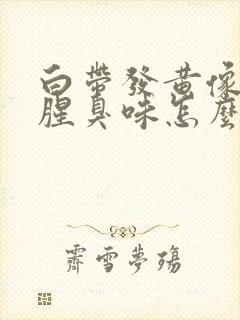 白帶發黃像
腥臭味怎麼
霽雪夢殤